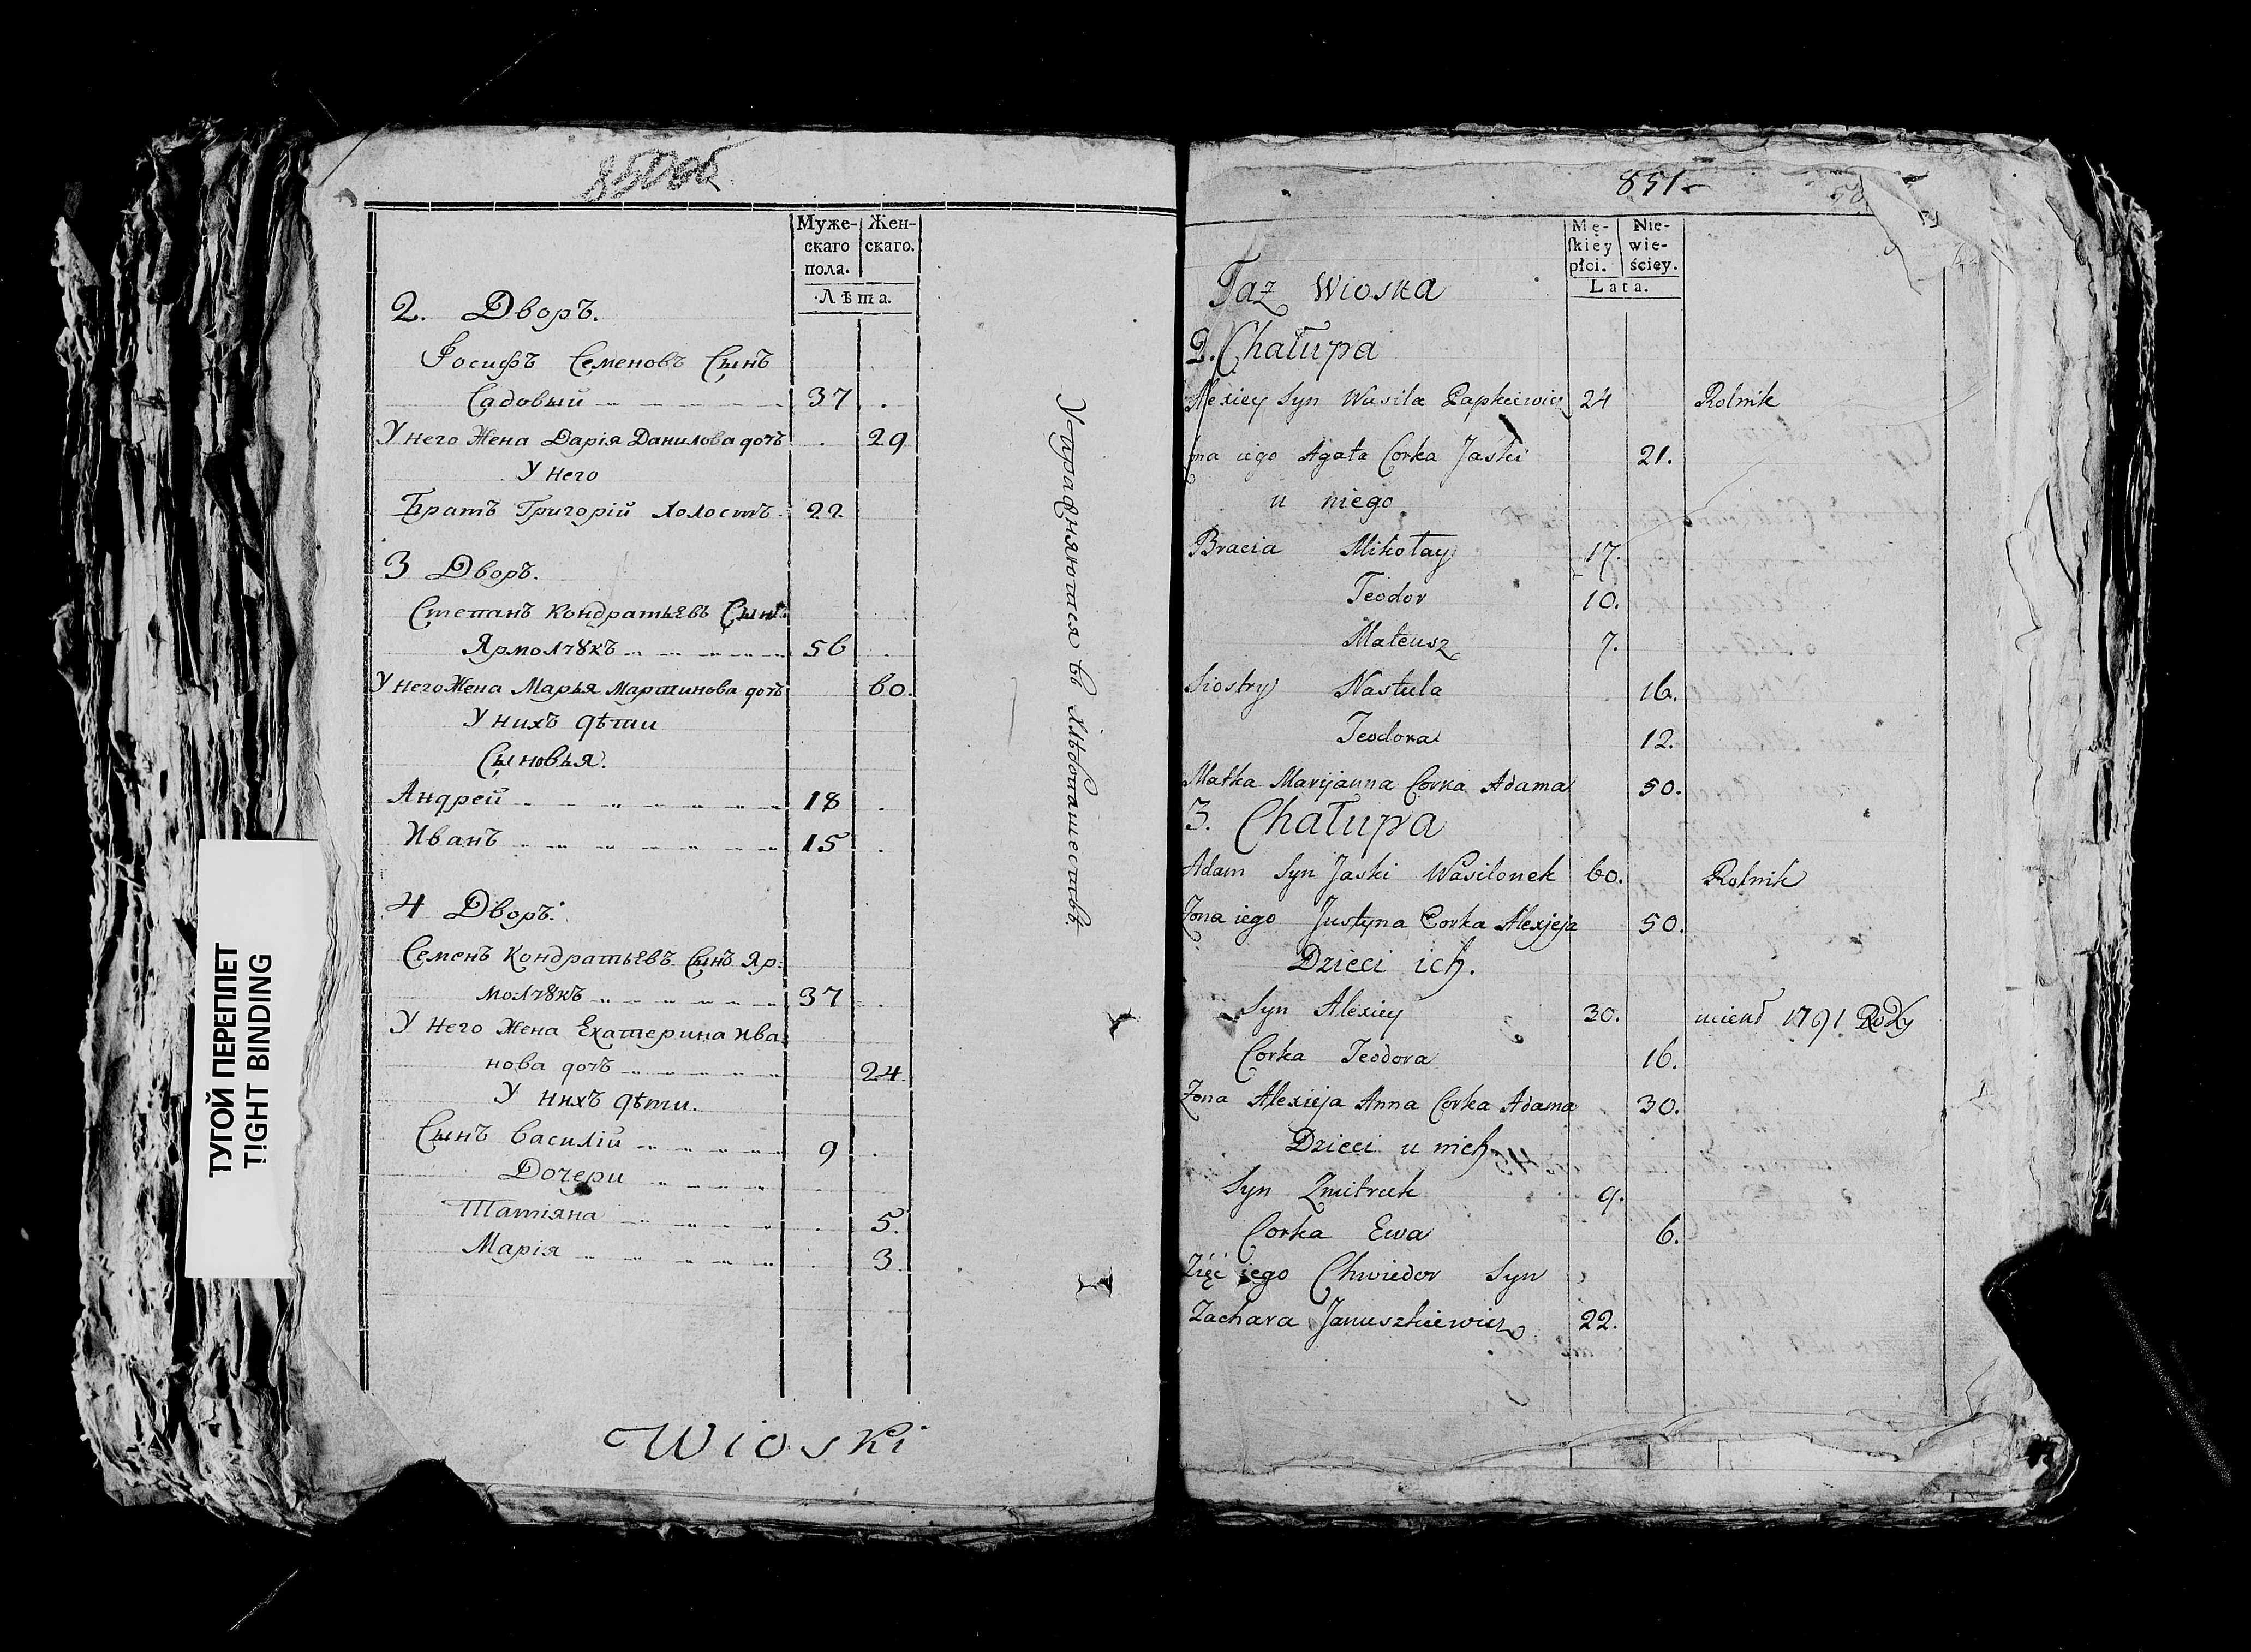 850об
Муже-
скаго
пола.
Жен-
скаго.
Лѣта.
2. Дворъ.
Іосифъ Семеновъ Сынъ
Садовый 37 .
У него Жена Дарія Данилова дочь . 29
У него
Братъ Григорій Холостъ. 22
3 Дворъ.
Степанъ Кондратьевъ Сынъ
Ярмолчукъ 56 .
У него Жена Марья Мартинова дочь 60.
У нихъ дѣти
Сыновья.
Андрей 18 .
Иванъ 15 .
4 Дворъ.
Семенъ Кондратьевъ Сынъ Яр:
молчукъ 37 .
У Него Жена Екатерина Ива:
нова дочь 24.
У нихъ дѣти.
Сынъ Василій 9 .
Дочери
Татіяна . 5.
Марія . 3
Wioski
Упражняются въ хлѣбопашествѣ.
ТУГОЙ ПЕРЕПЛЕТ
TIGHT BINDING
851
Mę-
skiey
płci.
Nie-
wie-
ściey.
Lata.
Taz Wioska
2. Chałupa
Alexiey Syn Wasila Papkiewicz 24 Rolnik
iego Agata Corka Jaski 21.
u niego
Bracia Mikołay 17.
Teodor 10.
Mateusz 7.
Siostry Nastula 16.
Teodora 12.
Matka Maryanna Corka Adama 50.
3. Chałupa
Adam Syn Jaski Wasilonek 60. Rolnik
Zona iego Justyna Corka Alexjeja 50.
Dzieci ich.
Syn Alexiey 30. uciekł 1791 Roku
Corka Teodora 16.
Zona Alexieja Anna Corka Adama 30.
Dzieci u nich
Syn Zmitruk 9.
Corka Ewa 6.
Zięć iego Chwiedor Syn
Zachara Januszkiewicz 22.